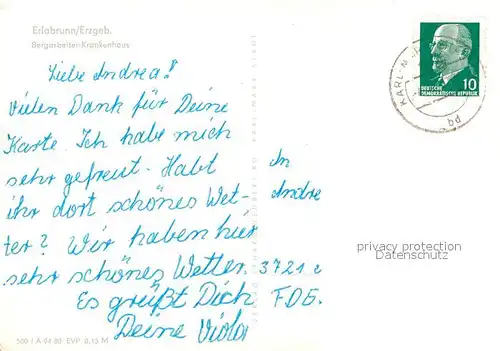 Erlabrunn/Erzgeb.
Bergarbeiter-Krankenhaus
Liebe Andrea!
Vielen Dank für Deine
Karte. Ich habe mich
sehr gefreut. Habt
ihr dort schönes Wet-
ter? Wir haben hier
sehr schönes Wetter.
Es grüßt Dich
Deine Viola
10
DEUTSCHE
DEMOKRATISCHE REPUBLIK
KARL-M
An
Andre
3721
F.D.G.
privacy protection
Datenschutz
500 I A 04 80 EVP 0,15 M